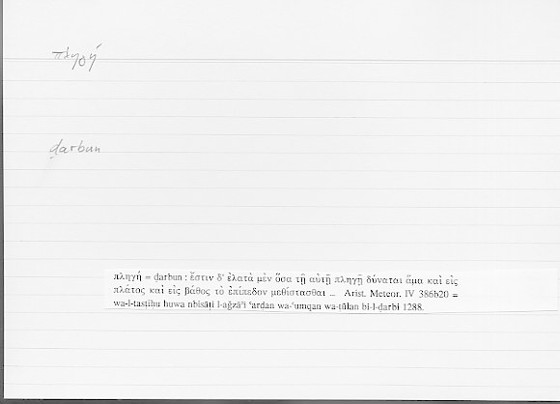 πληγή
ḍarbun
πληγή = ḍarbun : ἔστιν δ' ἐλατὰ μὲν ὅσα τῇ αὐτῇ πληγῇ δύναται ἅμα καὶ εἰς
πλάτος καὶ εἰς βάθος τὸ ἐπίπεδον μεθίστασθαι ... Arist. Meteor. IV 386b20 =
wa-l-taṣfīḥu huwa nbisāṭi l-aǧzāʾi ʿarḍan wa-ʿumqan wa-ṭūlan bi-l-ḍarbi 1288.